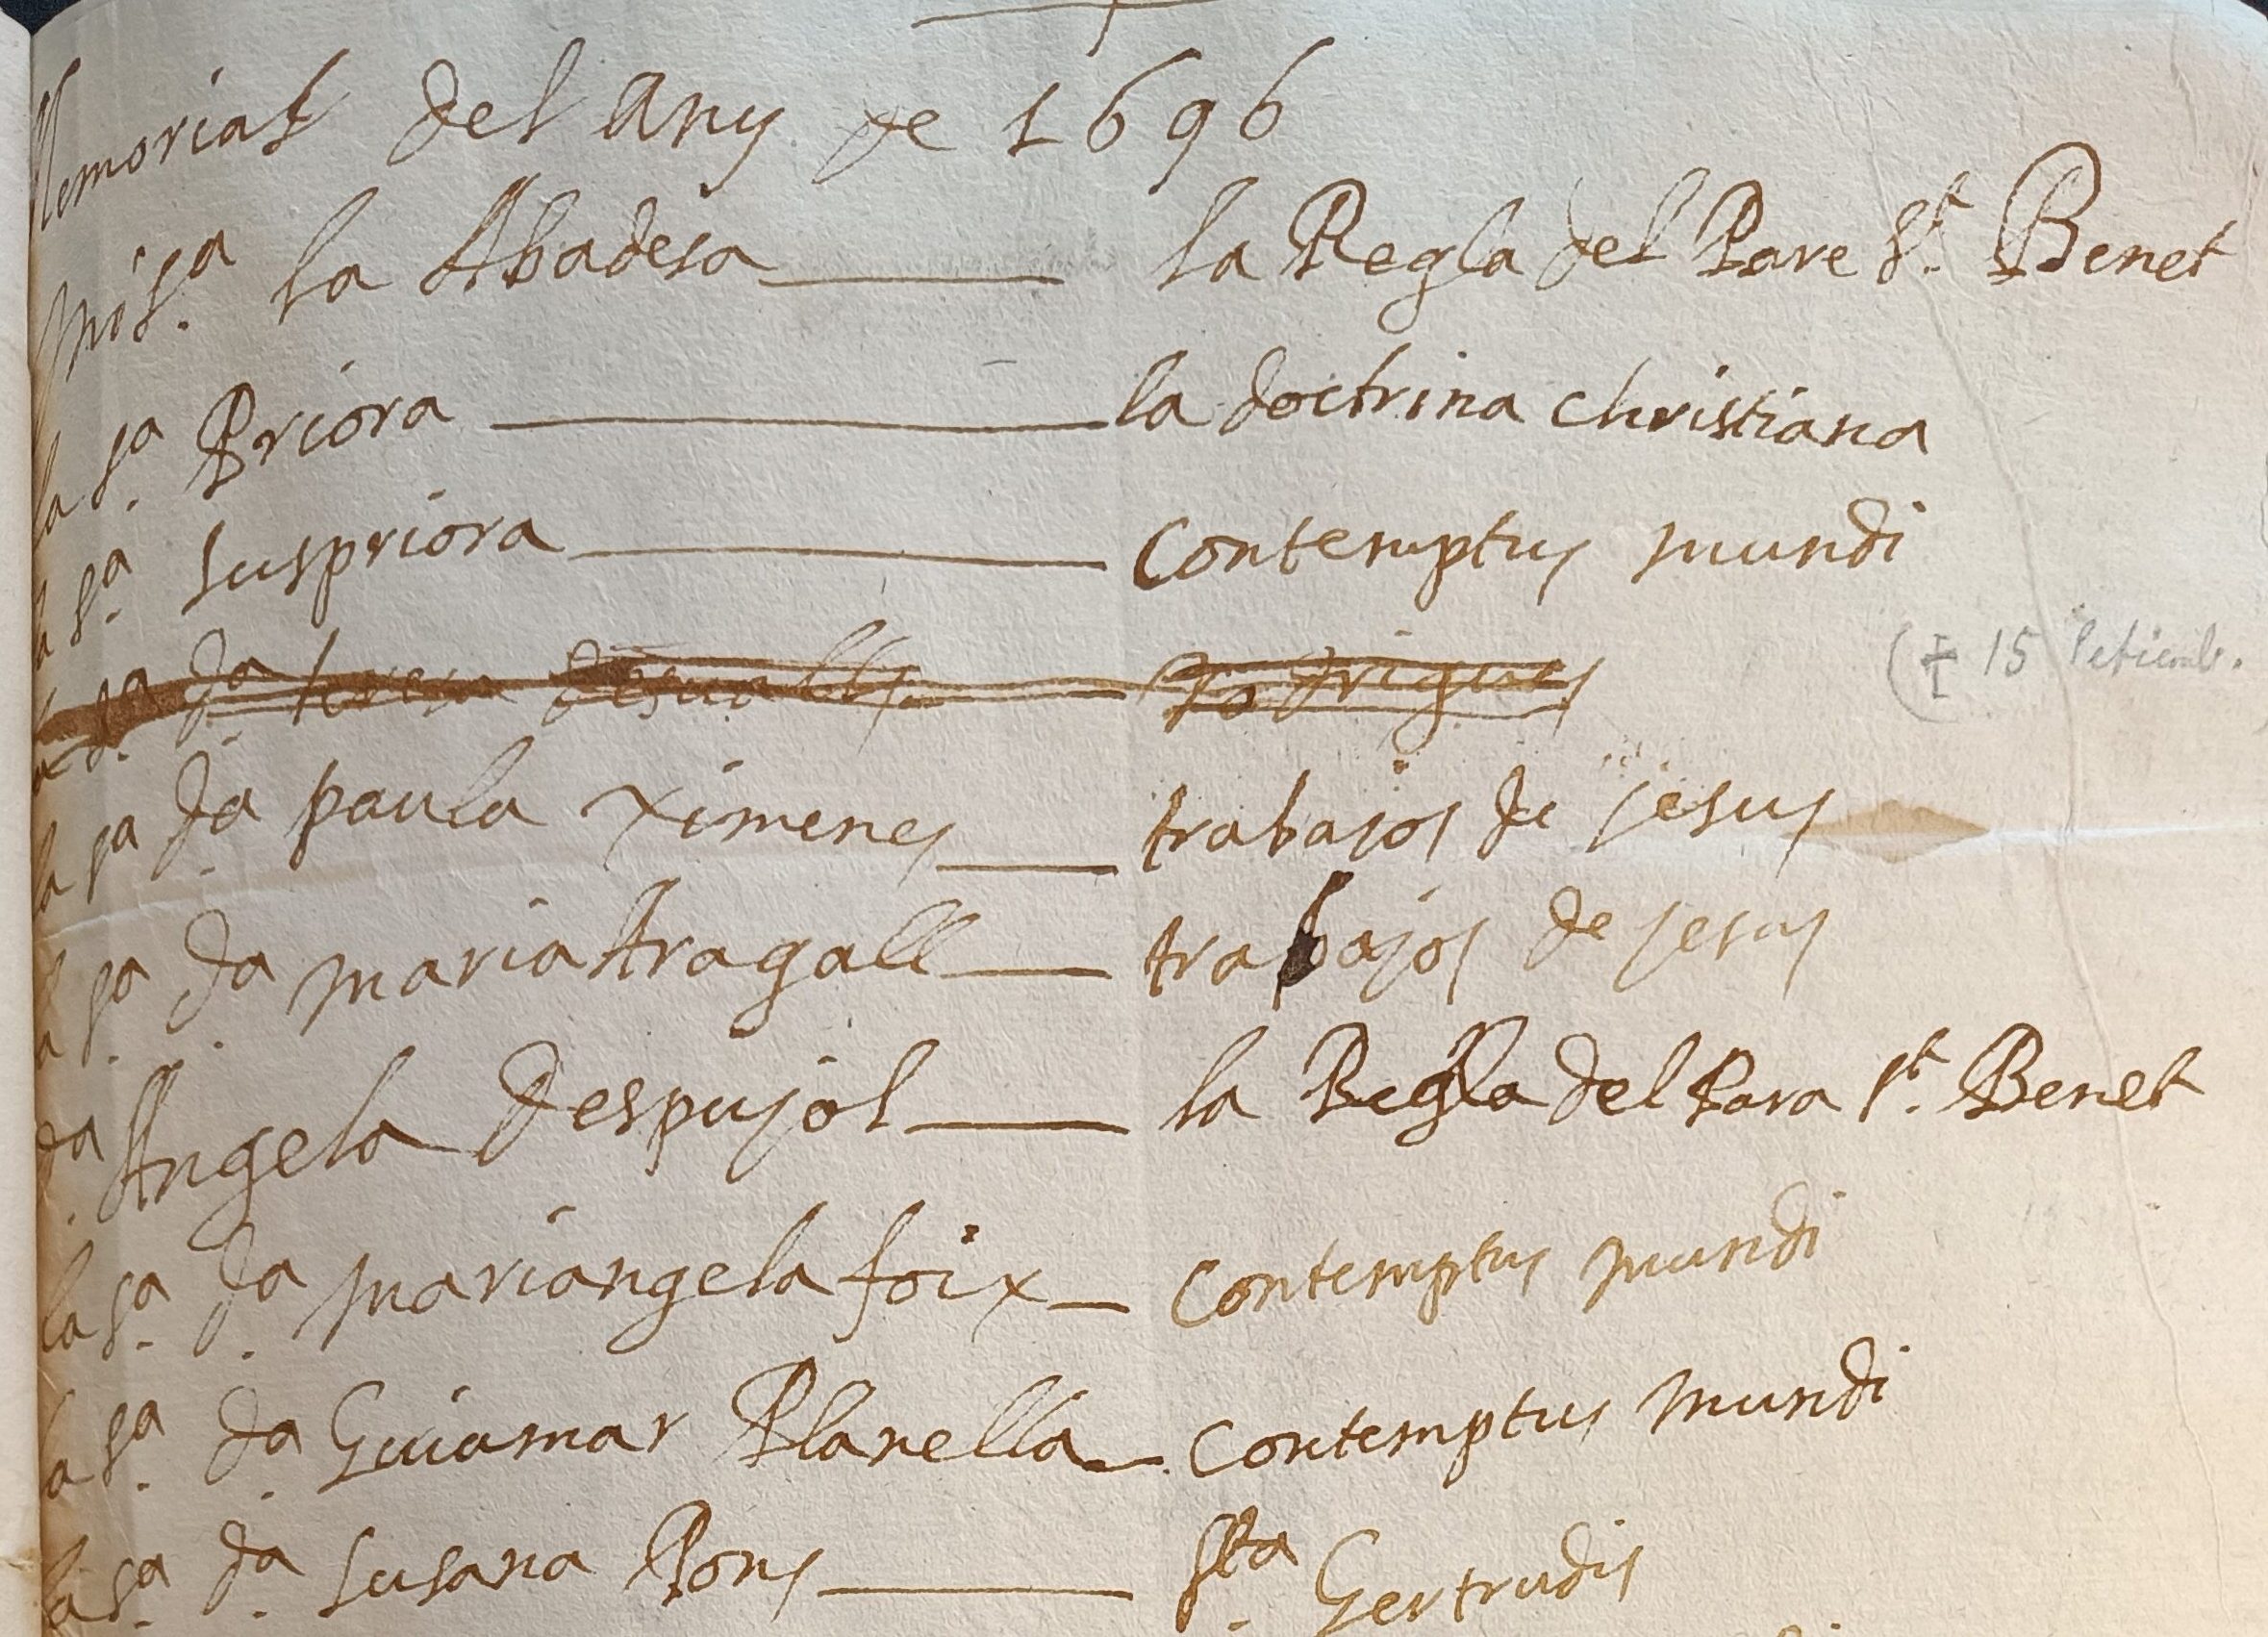 Memorial del Any de 1696
Mi Sª. la Abadesa la Regla del Pare St. Benet
la Sª. Priora la doctrina christiana
la Sª. suspriora Contemptus mundi
la Sª. Dª. teresa desvalls Rodrigues († 15 Setiemb.
la Sª Dª. paula ximenes trabajos de jesus
la Sª. Dª. maria Aragall trabajos de jesus
Dª. Angela Despujol la Regla del Para St. Benet
la Sª. Dª. mariangela foix Contemptus mundi
la Sª. Dª. Guiamar Planella Contemptus mundi
la Sª. Dª. susana Pons Sta. Gertrudis